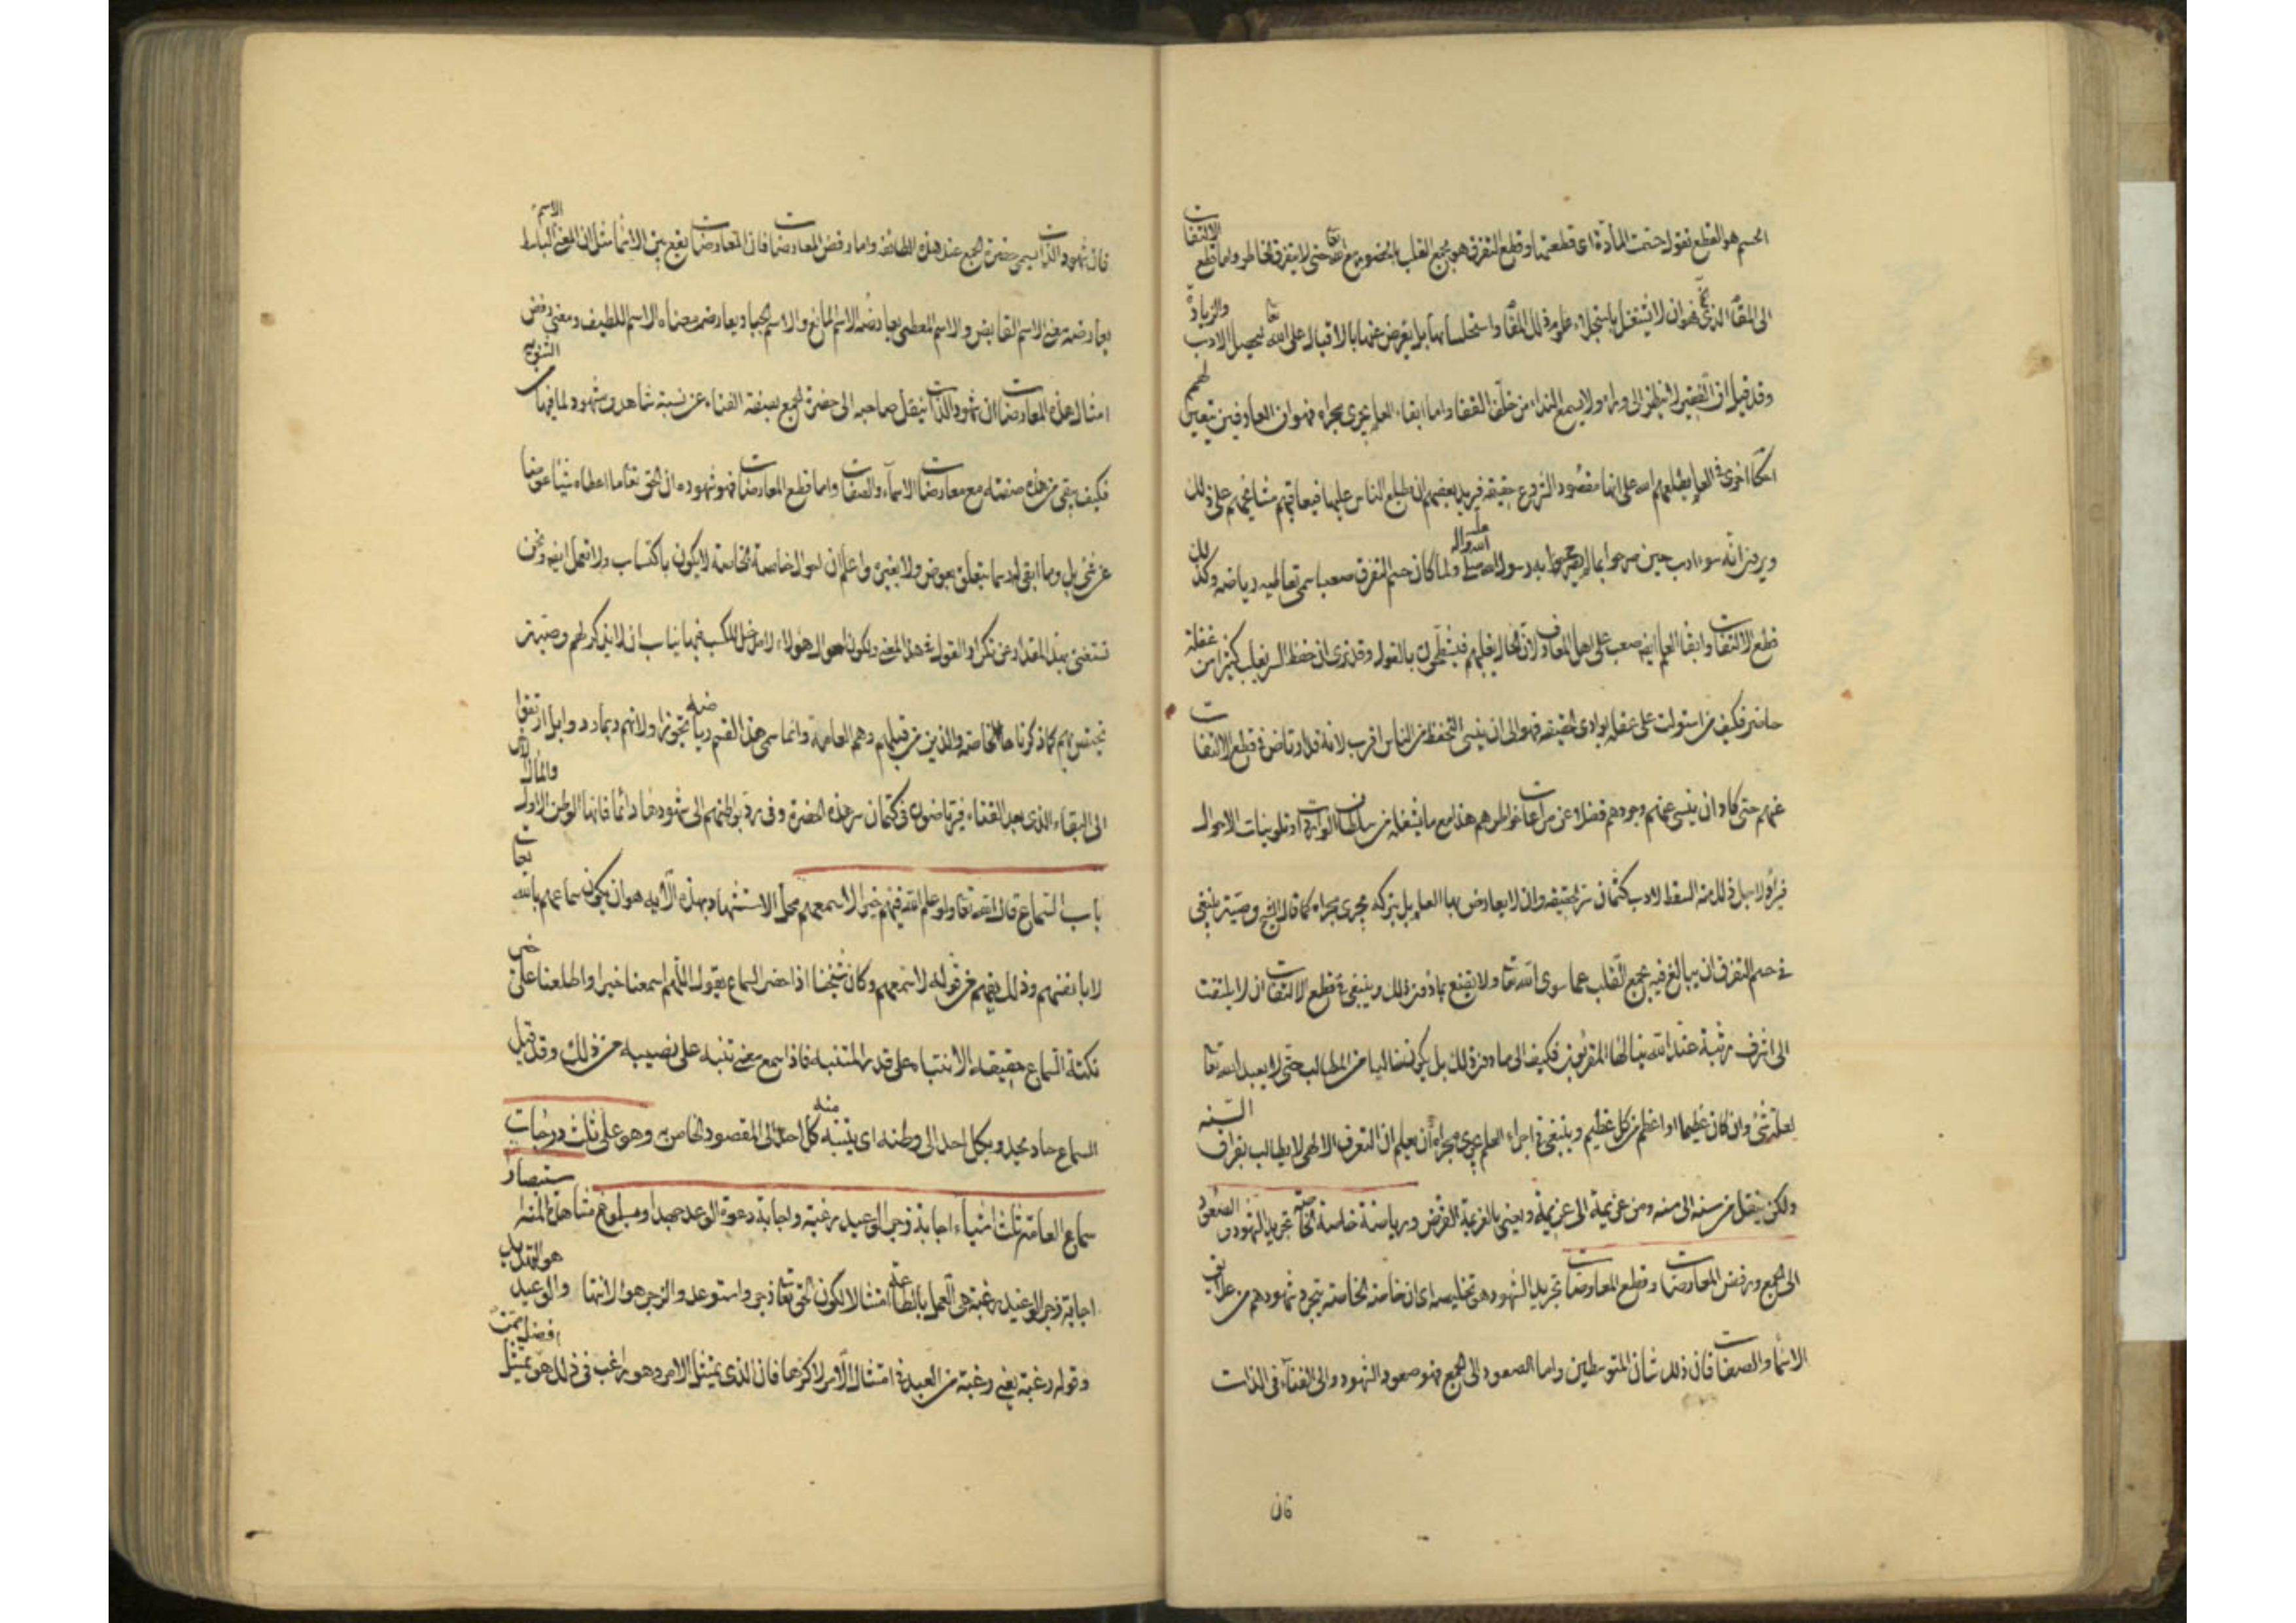 الحسم هو القطع تقول حسمت المادة اى قطعتها وقطع التفرق هو بجمع القلب بالحضور مع الله تعا حتى لا يتفرق الخاطر واما قطع الالتفات
الى المقام الذى هو ان لا يشتغل باستجلاء علوم ذلك المقام واستحلائها بل يعرض عنها بالاقبال على الله تعا ليحصل الادب والزيادة
وقد قيل ان الفقير لا ينظر الى وراه ولا يسمع النداء من خلف القفا واما ابقاء العلم يجرى مجراه فهو ان العارفين يتعين لهم
احكاما اخرى فى العلم يطلعهم الله على انها مقصود الشرع حقيقة فيريد بعضهم ان يطلع الناس عليها فيعاتبهم مشايخهم على ذلك
ويرون انه سوء ادب حين صرحوا بما لم يصرح به رسول الله صلى الله عليه واله ولما كان حسم التفرق صعبا سمى تعاطيه رياضة وكذلك
قطع الالتفات وابقاء العلم ايضا صعب على اهل المعارف لان الحال يغلبهم فيشطحون بالقول وقد ترى ان حفظ السر يغلب كثيرا من غفلة
حاضر فكيف من استولت على عقله بوادى الحقيقة فهو الى ان ينسى التحفظ من الناس اقرب لانه قد ارتاض فى قطع الالتفات
عنهم حتى كاد ان ينسى عنهم وجودهم فضلا عن مراعات خواطرهم هذا مع ما يشغله من سلطان الواردات وتلوينات الاحوال
فيراد لاجل ذلك منه السقط لادب كتمان سر الحقيقة وان لا يعارض بها العلم بل يتركه يجرى مجراه كما قال الشيخ وصيته ينبغى
فى حسم التفرق ان يبالغ فيه بجمع القلب عما سوى الله تعا ولا يقنع بما دون ذلك وينبغى فى قطع الالتفات ان لا يلتفت
الى اشرف مرتبة عند الله ينالها المقربون فكيف الى ما دون ذلك بل يكون خاليا من المطالب حتى لا يعبد الله تعا
لعلة شئ وان كان عظيما او اعظم من كل عظيم وينبغى فى اجراء العلم يجرى مجراه ان يعلم ان التعرف الالهى لا يطالب بفراق السنه
ولكن ينتقل من سنة الى سنه ومن عزيمة الى عزيمة ويعنى بالعزيمة الفرض ورياضة خاصة الخاصة تجريد الشهود والصعود
الى الجمع ورفض المعارضات وقطع المعاوضات تجريد الشهود هو تخليصه اى ان خاصة الخاصة يتجرد شهودهم من علايق
الاسماء والصفات فان ذلك شان المتوسطين واما الصعود الى الجمع فهو صعود الشهود والى الفناء فى الذات
فان
فان شهود الذات يسمى حضرة الجمع عند هذه الطائفة واما رفض المعارضات فان المعارضات يقع بين الاسماء مثل ان المعنى الاسم الباسط
يعارضه معنى الاسم القابض والاسم المعطى يعارضه الاسم المانع والاسم الجبار يعارض معناه الاسم اللطيف ومعنى رفض
امثال هذه المعارضات ان شهود الذات ينقل صاحبه الى حضرة الجمع بصفة الفناء عن نسبة شاهد ومشهود لما فيها من التنويه
فكيف يبقى من هذه صفته مع معارضات الاسماء والصفات واما قطع المعاوضات فهو شهوده ان الحق تعا ما اعطاه شيئا عوضا
عن شئ بل وما ابقى له رسما يتعلق بعوض ولا بغيره واعلم ان احوال خاصة الخاصة لا يكون باكتساب ولا تعمل ايضا ونحن
نستغنى بهذا المقدار عن تكرار القول فى هذا المعنى ولكون احوال هؤلاء لا مدخل للكسب فيها يناسب ان لا يذكر لهم وصية
تختص بهم كما ذكرنا حال الخاصة والذين من قبلهم وهم العامة وانما سمى هذا القسم رياضة تجوزا ولانهم ربما ردوا وارتقوا
الى البقاء الذى بعد الفناء فيرتاضون فى كتمان سر هذه الحضرة وفى رد بواطنهم الى شهودها دائما فانها الوطن الاول والمآل
باب السماع قال الله تعا ولو علم الله فيهم خيرا لاسمعهم محل الاستشهاد بهذه الآية هو ان يكون سماعهم بالله تعا
لا بانفسهم وذلك يفهم من قوله لاسمعهم وكان شيخنا اذا حضر السماع يقول اللهم اسمعنا خيرا واطلعنا على خير
نكتة السماع حقيقة الانتباه على قدر المتنبه فاذا سمع معنى تنبه على نصيبه من ذلك وقد قيل
السماع حاد يحدو بكل احد الى وطنه اى يتنبه كل احد منه الى المقصود الخاص به وهو على ثلث درجات
سماع العامة ثلث اشياء اجابة زجر الوعيد رغبة واجابة دعوة الوعد جهدا وبلوغ مشاهدة المنة استبصارا
اجابة زجر الوعيد رغبة هى العمل بالطاعة امتثالا لكون الحق تعا زجر واستوعد والزجر هو الانتها والوعيد هو التهديد
وقوله رغبة يعنى رغبة من العبد فى امتثال الامر لا كرها فان الذى يمتثل الامر وهو راغب فى ذلك هو افضل ممن يمتثل